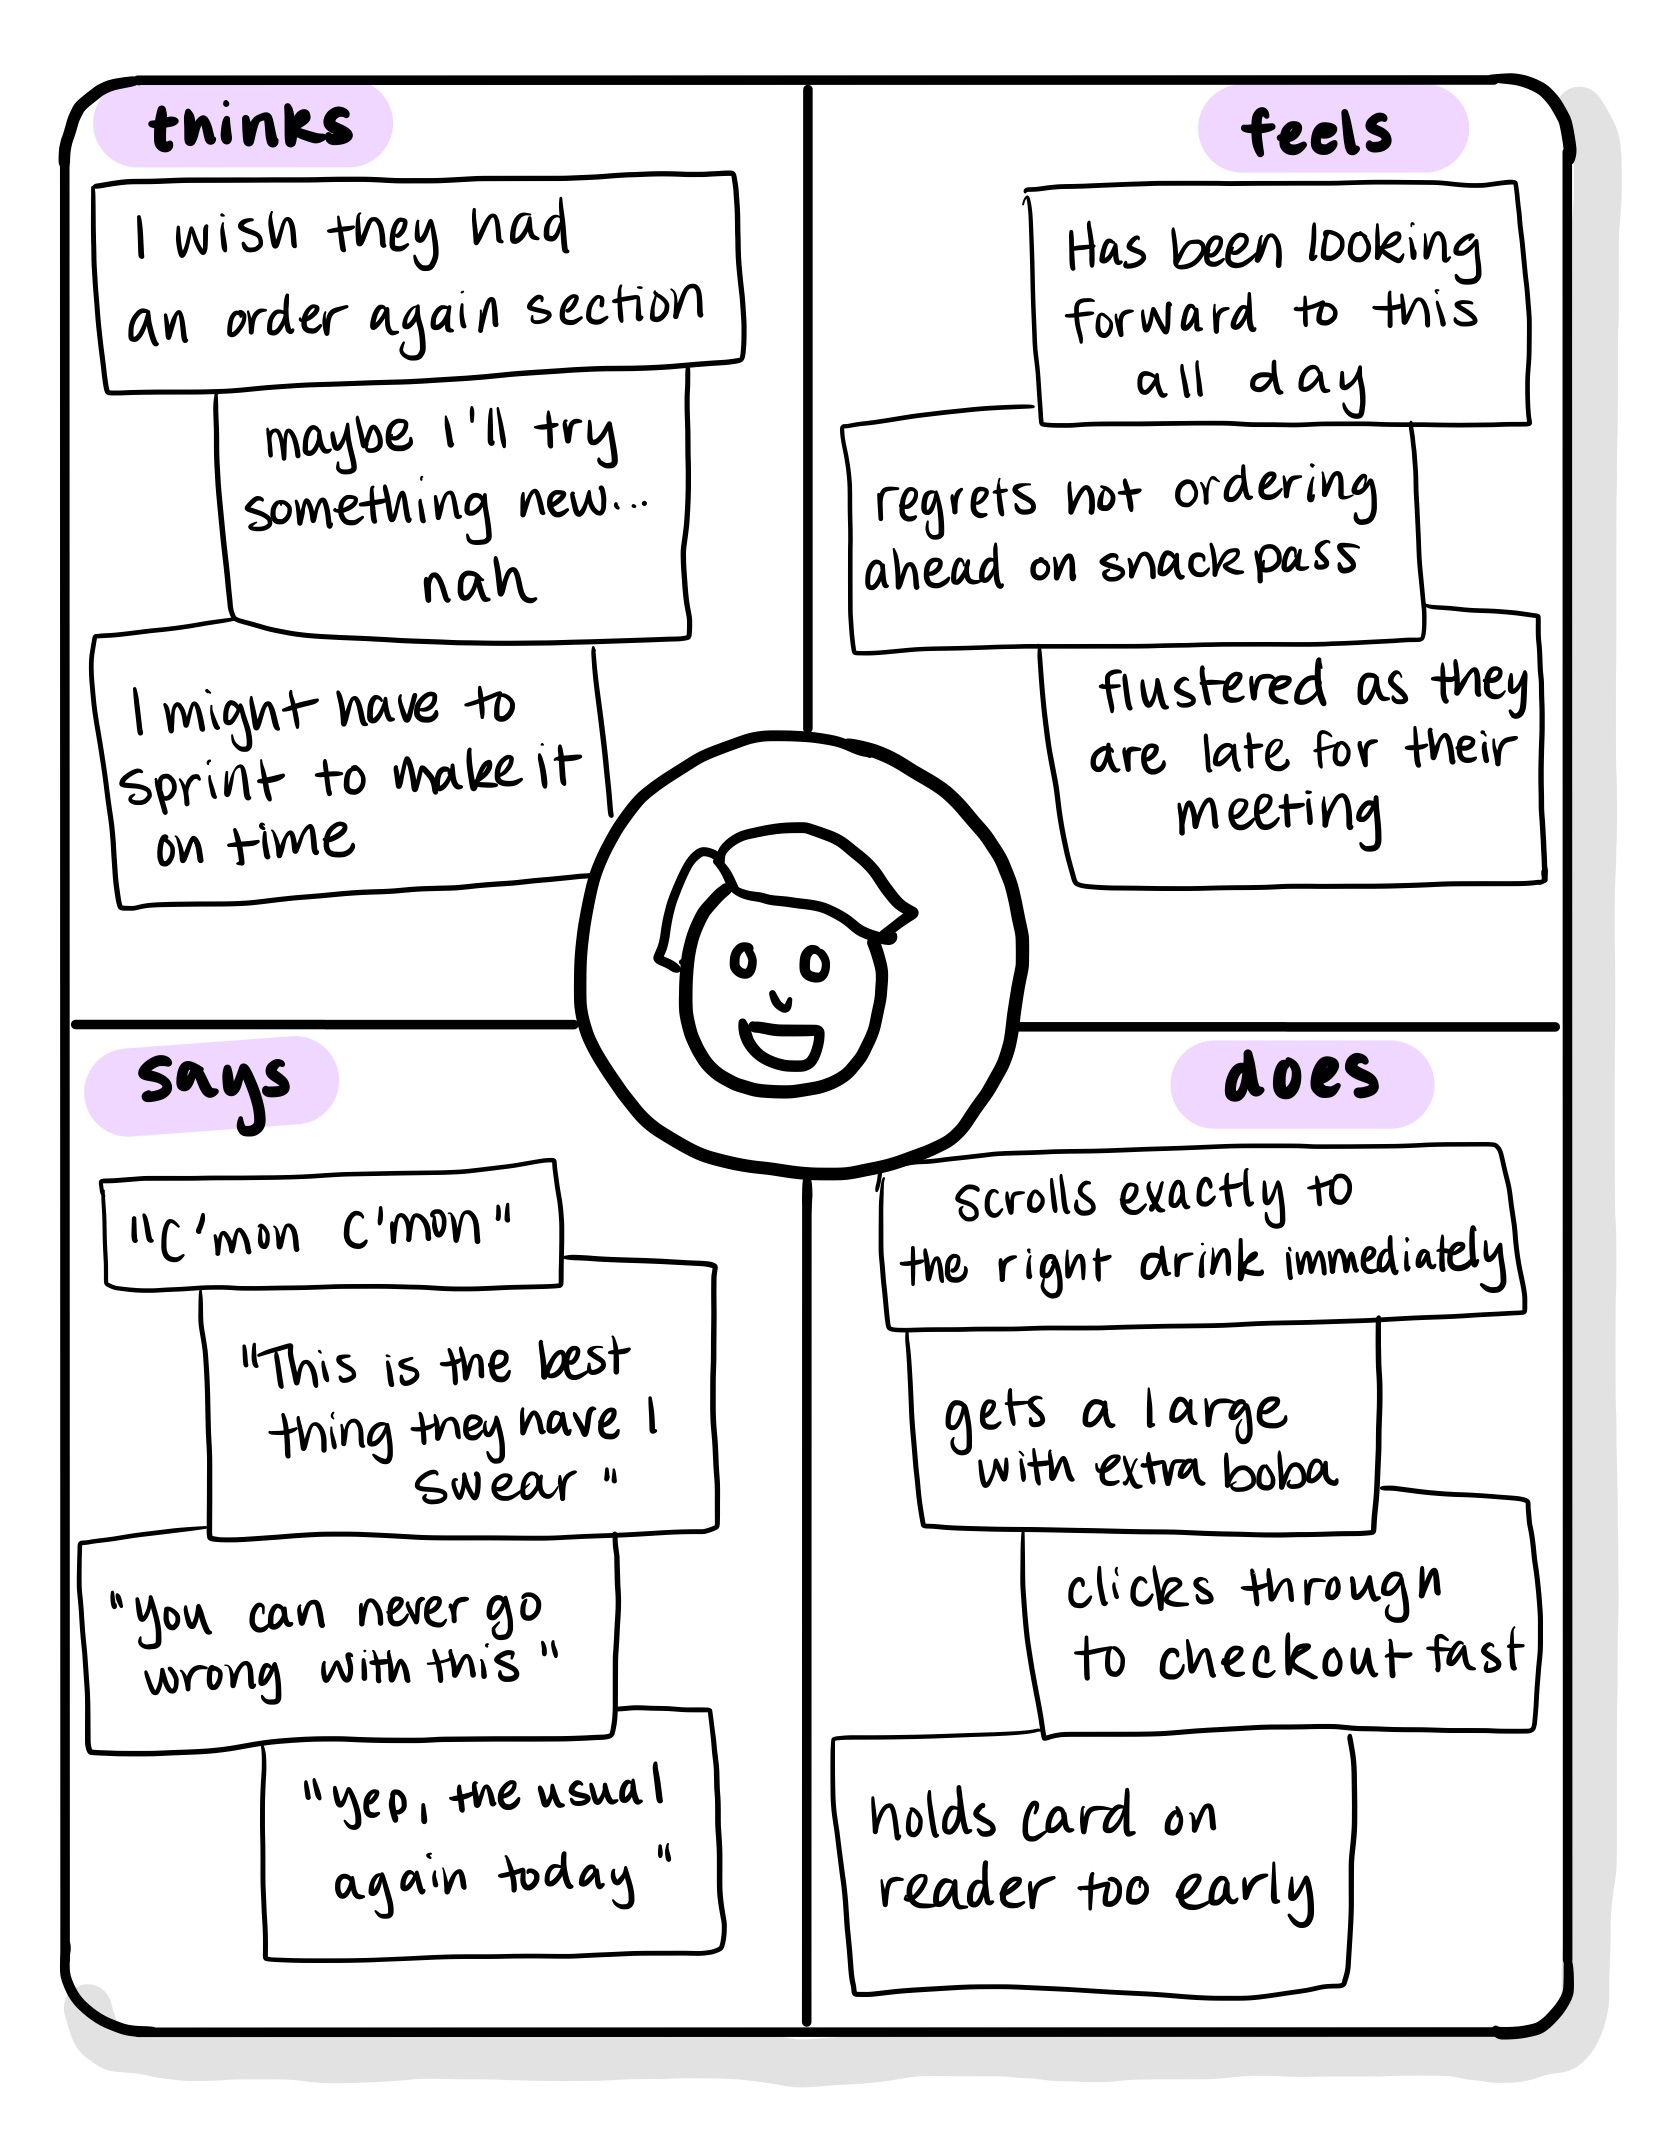 thinks
I wish they had
an order again section
maybe I'll try
something new...
nah
I might have to
sprint to make it
on time
feels
Has been looking
forward to this
all day
regrets not ordering
ahead on snackpass
flustered as they
are late for their
meeting
says
"C'mon C'mon"
"This is the best
thing they have I
swear"
"You can never go
wrong with this"
"Yep, the usual
again today"
does
scrolls exactly to
the right drink immediately
gets a large
with extra boba
clicks through
to checkout fast
holds card on
reader too early